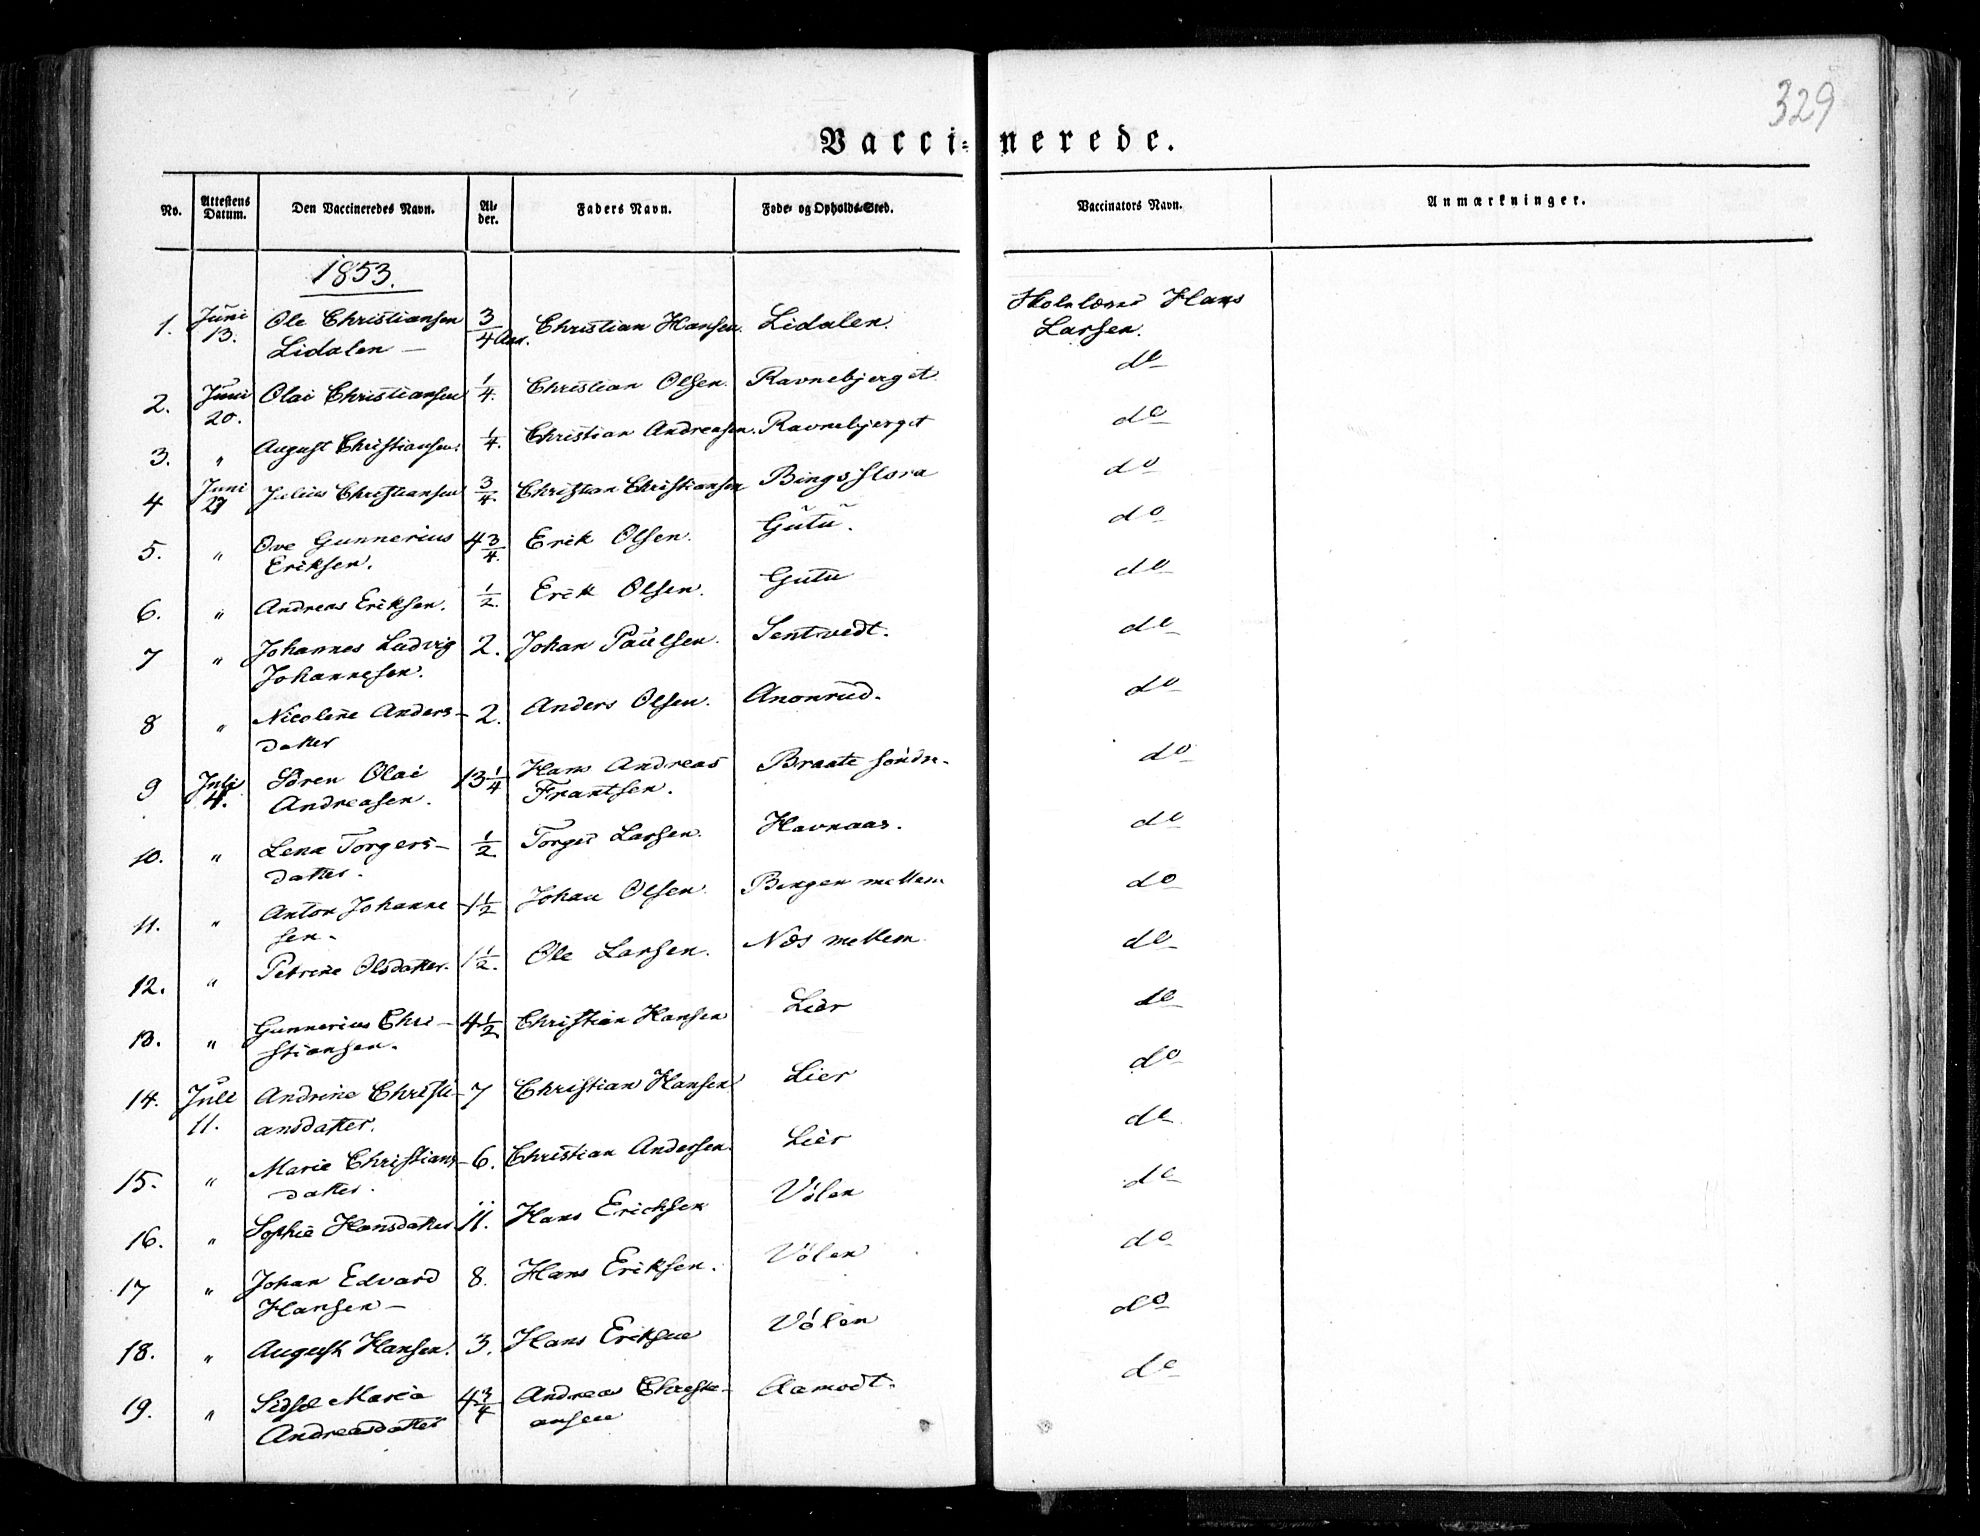 329
Vaccinerede.
No. Attestens Datum. Den Vaccineredes Navn. Alder. Faders Navn. Føde- og Opholds-Sted. Vaccinators Navn. Anmærkninger.
1853.
1. Juni 13. Ole Christiansen Lidalen — 3/4 Aar. Christian Hansen. Lidalen. Skolelærer Hans Larsen.
2. Juni 20. Olai Christiansen 1/4. Christian Olsen. Ravnebjerget do
3. " August Christiansen. 1/4. Christian Andreasen. Ravnebjerget do
4 Juni 27 Julius Christiansen 3/4. Christian Christiansen Bingsflora do
5. " Ove Gunnerius Eriksen. 4 3/4. Erik Olsen. Gutu. do
6. " Andreas Eriksen. 1/2. Erik Olsen. Gutu do
7 " Johannes Ludvig Johannesen. 2. Johan Paulsen. Sentvedt. do
8 " Nicoline Andersdatter 2. Anders Olsen. Anonrud. do
9 Juli 4. Sören Olai Andreasen. 13 1/4 Hans Andreas Frantsen. Braate söndre do
10. " Lena Torgersdatter. 1/2 Torger Larsen. Havnaas. do
11. " Anton Johannesen. 1 1/2 Johan Olsen. Bingen mellem do
12. " Petrine Olsdatter. 1 1/2. Ole Larsen. Næs mellem do
13. " Gunnerius Christiansen. 4 1/2. Christian Hansen Lier do
14. Juli 11. Andrine Christiansdatter. 7 Christian Hansen Lier do
15. " Marie Christiansdatter. 6. Christian Andersen. Lier do
16. " Sophie Hansdatter 11. Hans Erichsen Völen do
17 " Johan Edvard Hansen — 8. Hans Eriksen. Völen do
18. " August Hansen. 3. Hans Eriksen Völen do
19. " Sidsel Maria Andreasdatter 4 3/4 Andreas Christiansen Aamodt. do